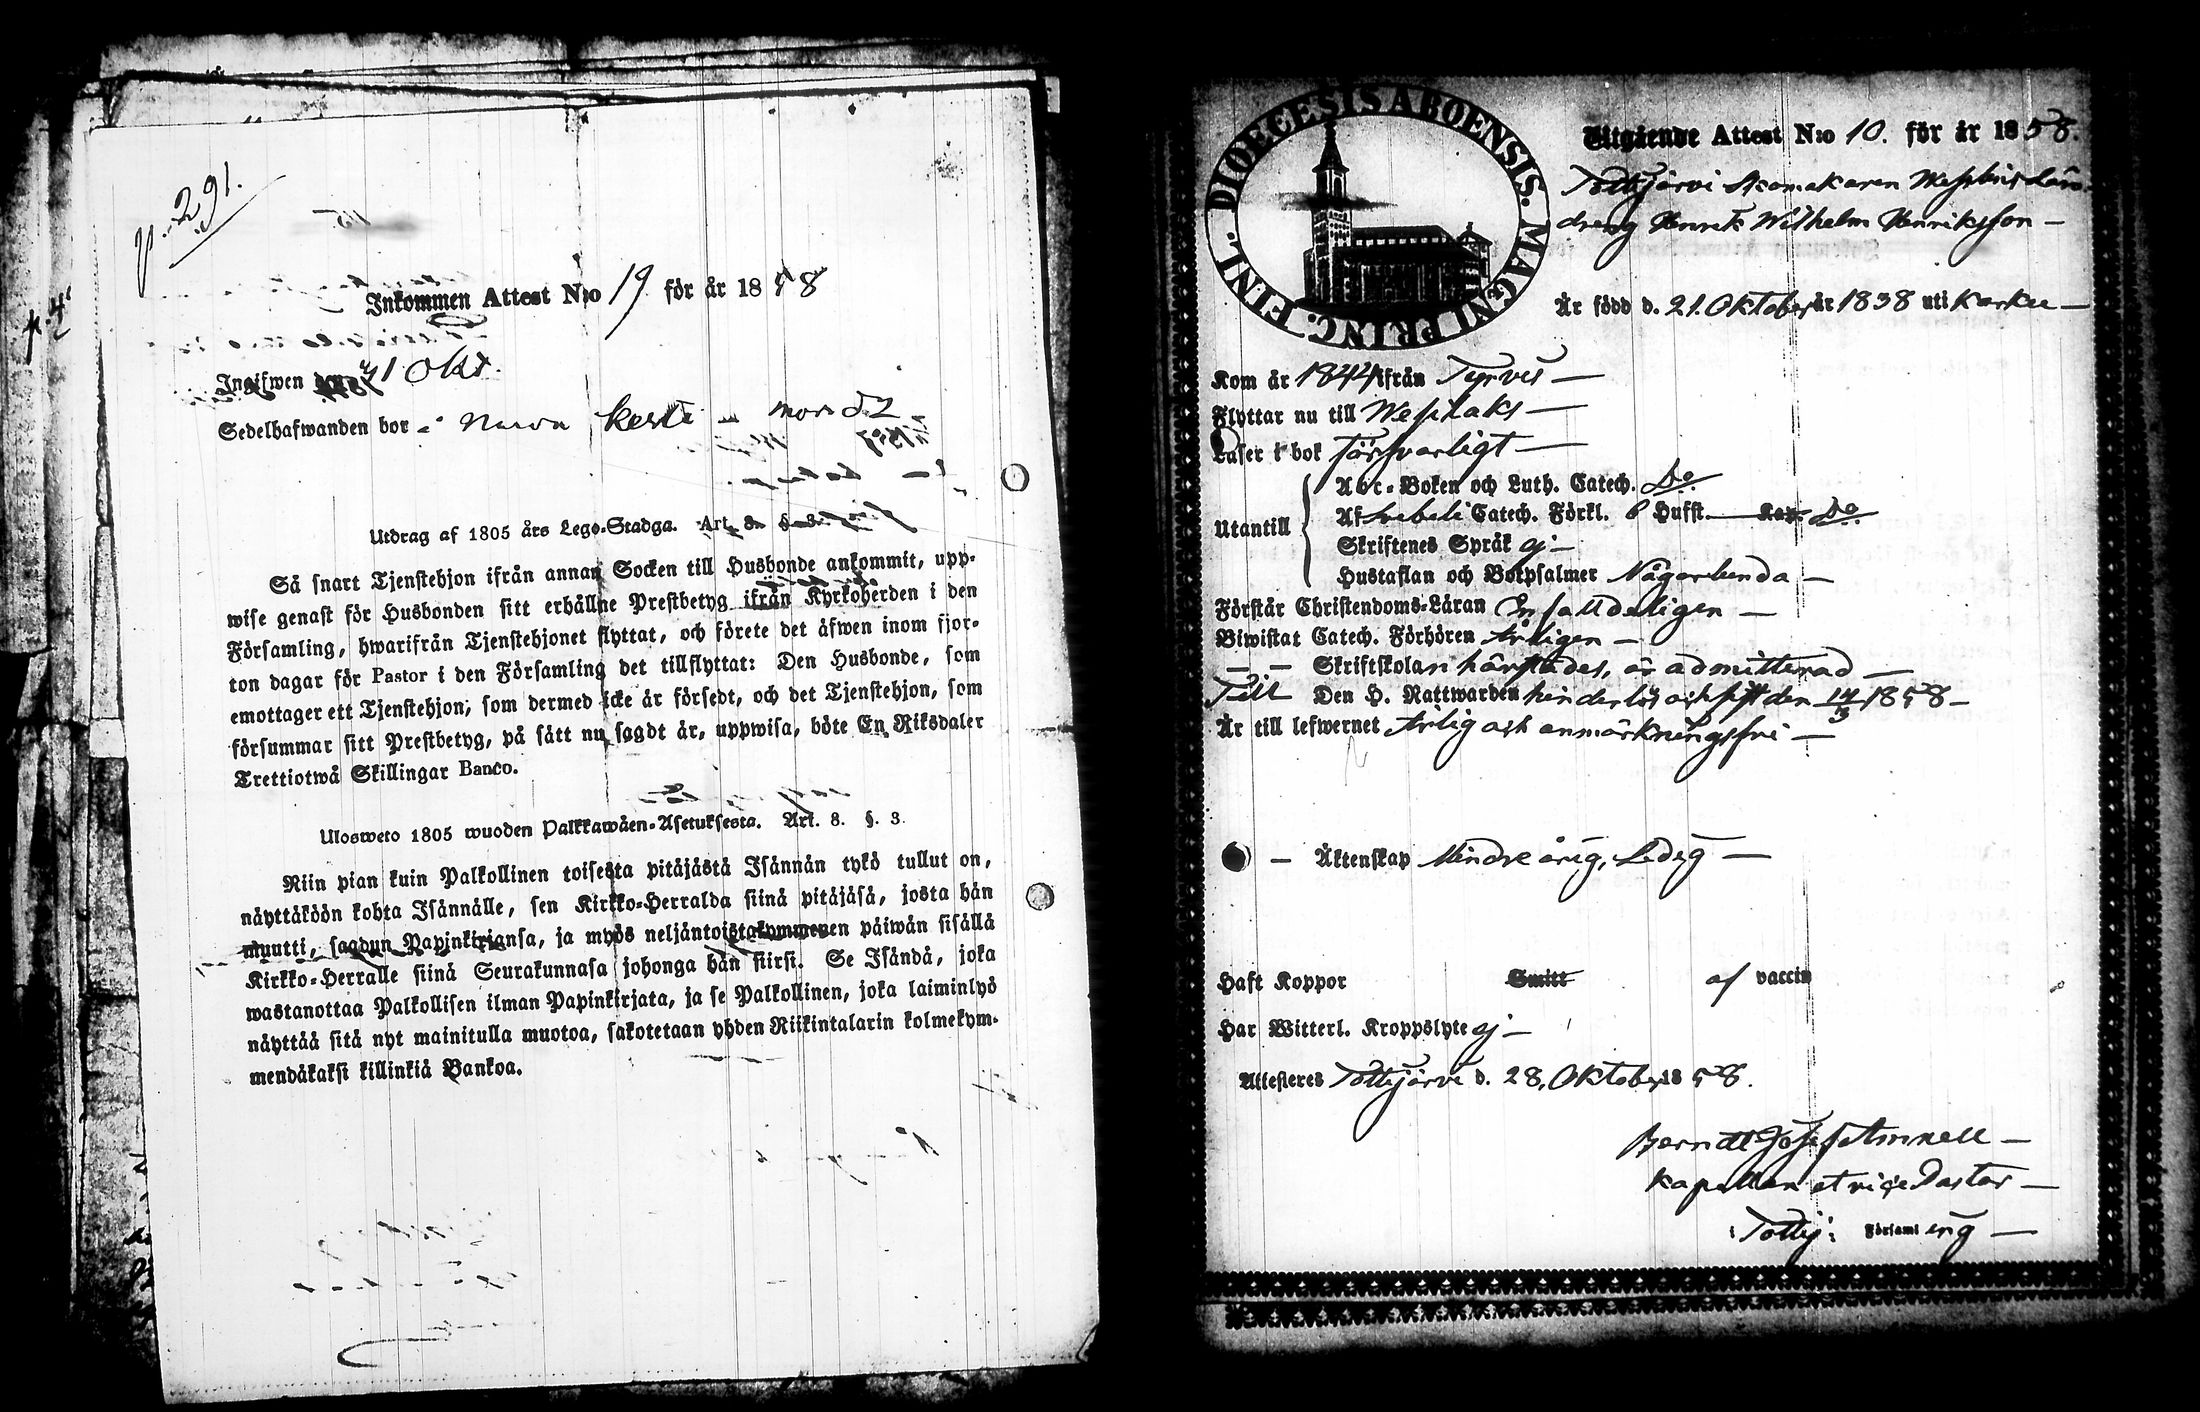 p. 291.
Inkommen Attest N:o 19 för år 1858
Ingifwen den 31 Okt.
Sedelhafwanden bor i
Utdrag af 1805 års Lego-Stadga. Art. 8. §. 3.
Så snart Tjenstehjon ifrån annan Socken till Husbonde ankommit, upp-
wise genast för Husbonden sitt erhållne Prestbetyg ifrån Kyrkoherden i den
Församling, hwarifrån Tjenstehjonet flyttat, och förete det äfwen inom fjor-
ton dagar för Pastor i den Församling det tillflyttat: Den Husbonde, som
emottager ett Tjenstehjon, som dermed icke är försedt, och det Tjenstehjon, som
försummar sitt Prestbetyg, på sätt nu sagdt är, uppwisa, böte En Riksdaler
Trettiotwå Skillingar Banco.
Ulosweto 1805 wuoden Palkkawäen-Asetuksesta. Art. 8. §. 3.
Niin pian kuin Palkollinen toisesta pitäjästä Isännän tykö tullut on,
näyttäköön kohta Isännälle, sen Kirkko-Herralda siinä pitäjäsä, josta hän
muutti, saadun Papinkirjansa, ja myös neljäntoistakymmenen päiwän sisällä
Kirkko-Herralle siinä Seurakunnasa johonga hän siirsi. Se Isändä, joka
wastanottaa Palkollisen ilman Papinkirjata, ja se Palkollinen, joka laiminlyö
näyttää sitä nyt mainitulla muotoa, sakotetaan yhden Riikintalarin kolmekym-
mendäkaksi killinkiä Bankoa.
DIOECESIS ABOENSIS. MAGNI PRINC. FINL.
Utgående Attest N:o 10. för år 1858.
Tottijärvi Skomakaren Wessbris Läro-
dreng Henrik Wilhelm Henriksson —
Är född d. 21. Oktober år 1838 uti Karkku —
Kom år 1844 ifrån Tyrvis —
Flyttar nu till Wesilaks —
Läser i bok Försvarligt —
Utantill
Abc-Boken och Luth. Catech. Do.
Af Svebelii Catech. Förkl. 6 Hufst. — Kap. Do.
Skriftenes Språk ej —
Hustaflan och Botpsalmer Någorlunda —
Förstår Christendoms-Läran Enfalldeligen —
Biwistat Catech. Förhören Årligen —
— — Skriftskolan härstädes, är admitterad —
Till Den H. Nattwarden hinderlös och sist den 14/3 1858 —
Är till lefwernet Ärlig och anmärkningsfri —
— Äktenskap Minderårig, Ledig —
Haft Koppor Smitt af vaccin
Har Witterl. Kroppslyte ej —
Attesteres Tottijärvi d. 28. Oktober 1858.
Berndt Josef Amnell —
Kapellan et vice Pastor —
i Tottij: Församling —